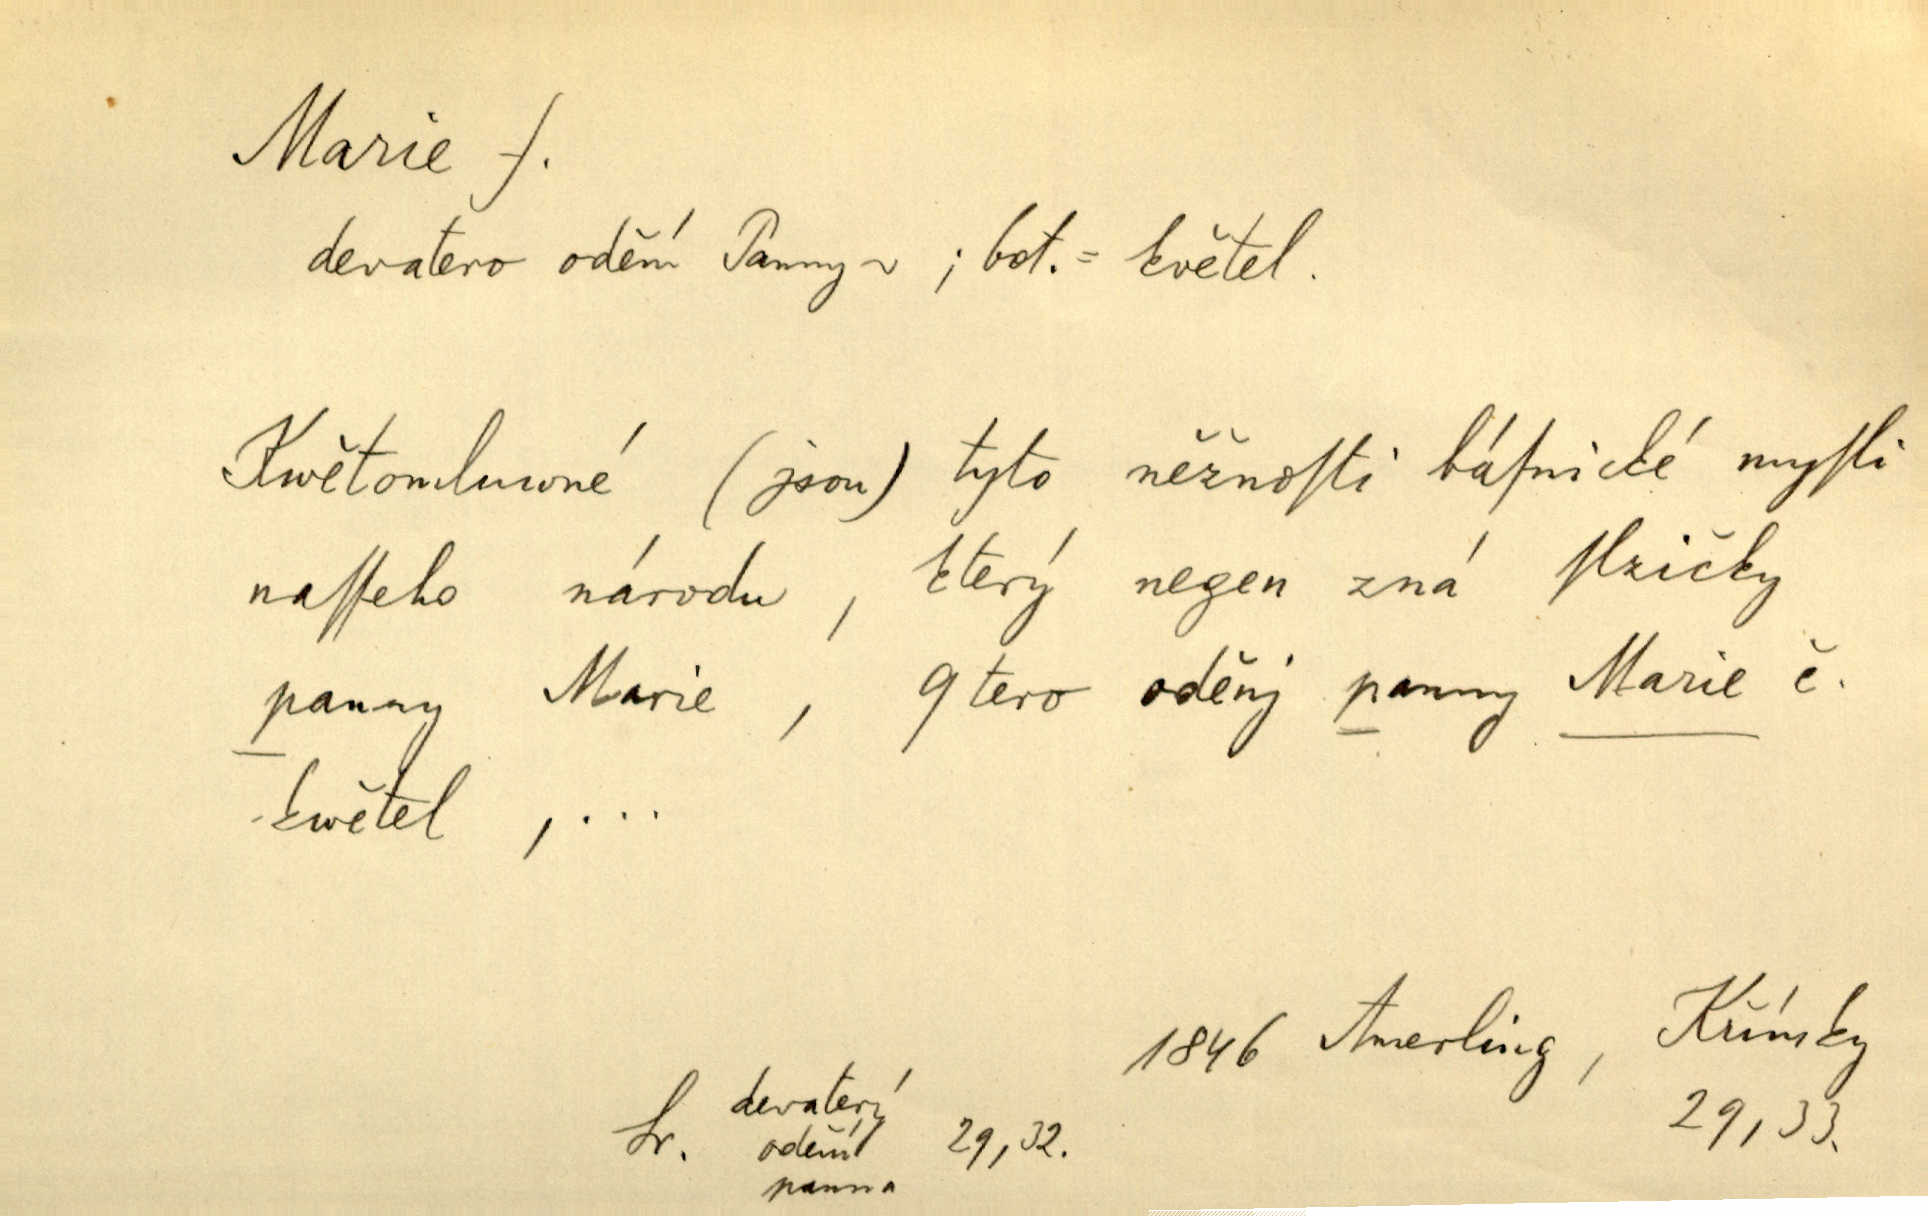 Marie f.
devatero odění Panny ~ ; bot. = květel.
Kwětomluwné (jsou) tyto něžnoſti báſnické myſli
naſſeho národu , který negen zná ſlzičky
panny Marie , 9tero oděnj panny Marie č.
kwětel , ...
1846 Amerling , Křímky
29,33.
Sr. devaterý
odění 29,32.
panna